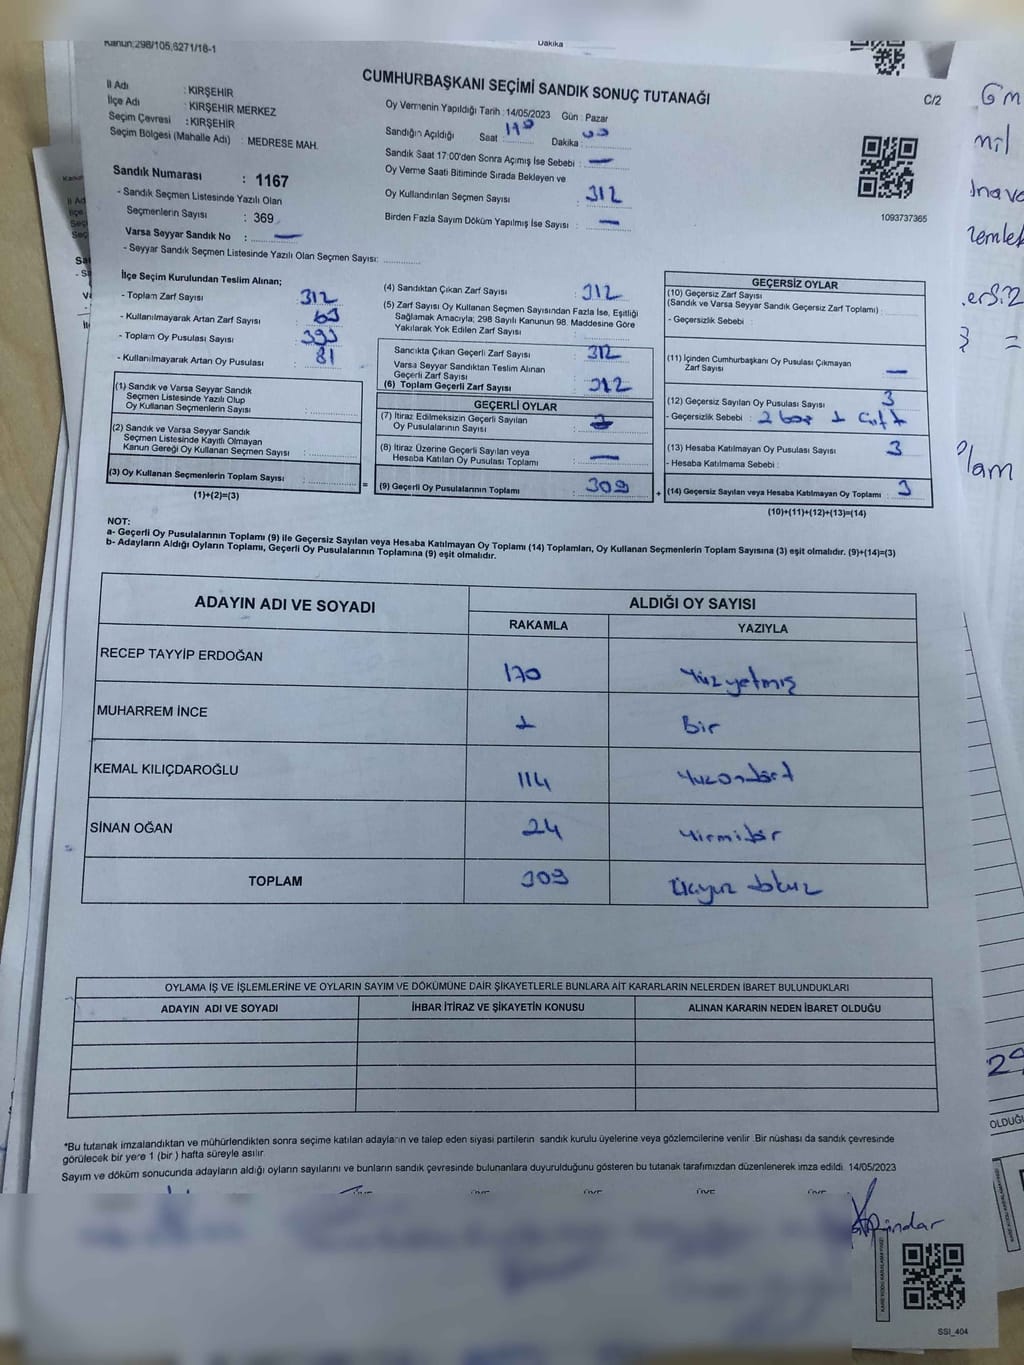 Kanun:298/105,6271/16-1
Dakika
CUMHURBAŞKANI SEÇİMİ SANDIK SONUÇ TUTANAĞI
C/2
İl Adı : KIRŞEHİR
İlçe Adı : KIRŞEHİR MERKEZ
Seçim Çevresi : KIRŞEHİR
Seçim Bölgesi (Mahalle Adı) : MEDRESE MAH.
Sandık Numarası : 1167
- Sandık Seçmen Listesinde Yazılı Olan
Seçmenlerin Sayısı : 369
Varsa Seyyar Sandık No : —
- Seyyar Sandık Seçmen Listesinde Yazılı Olan Seçmen Sayısı:
Oy Vermenin Yapıldığı Tarih : 14/05/2023 Gün : Pazar
Sandığın Açıldığı Saat Dakika :
Sandık Saat 17:00'den Sonra Açımış İse Sebebi : —
Oy Verme Saati Bitiminde Sırada Bekleyen ve
Oy Kullandırılan Seçmen Sayısı : 312
Birden Fazla Sayım Döküm Yapılmış İse Sayısı : —
1093737365
İlçe Seçim Kurulundan Teslim Alınan;
- Toplam Zarf Sayısı 312
- Kullanılmayarak Artan Zarf Sayısı
- Toplam Oy Pusulası Sayısı 393
- Kullanılmayarak Artan Oy Pusulası 81
(1) Sandık ve Varsa Seyyar Sandık
Seçmen Listesinde Yazılı Olup
Oy Kullanan Seçmenlerin Sayısı :
(2) Sandık ve Varsa Seyyar Sandık
Seçmen Listesinde Kayıtlı Olmayan
Kanun Gereği Oy Kullanan Seçmen Sayısı :
(3) Oy Kullanan Seçmenlerin Toplam Sayısı :
(1)+(2)=(3)
(4) Sandıktan Çıkan Zarf Sayısı : 312
(5) Zarf Sayısı Oy Kullanan Seçmen Sayısından Fazla İse, Eşitliği
Sağlamak Amacıyla; 298 Sayılı Kanunun 98. Maddesine Göre
Yakılarak Yok Edilen Zarf Sayısı :
Sandıkta Çıkan Geçerli Zarf Sayısı : 312
Varsa Seyyar Sandıktan Teslim Alınan
Geçerli Zarf Sayısı
(6) Toplam Geçerli Zarf Sayısı : 312
GEÇERLİ OYLAR
(7) İtiraz Edilmeksizin Geçerli Sayılan
Oy Pusulalarının Sayısı :
(8) İtiraz Üzerine Geçerli Sayılan veya
Hesaba Katılan Oy Pusulası Toplamı : —
(9) Geçerli Oy Pusulalarının Toplamı : 309
GEÇERSİZ OYLAR
(10) Geçersiz Zarf Sayısı
(Sandık ve Varsa Seyyar Sandık Geçersiz Zarf Toplamı) :
- Geçersizlik Sebebi :
(11) İçinden Cumhurbaşkanı Oy Pusulası Çıkmayan
Zarf Sayısı : —
(12) Geçersiz Sayılan Oy Pusulası Sayısı : 3
- Geçersizlik Sebebi : 2 boş 1 çift
(13) Hesaba Katılmayan Oy Pusulası Sayısı : 3
- Hesaba Katılmama Sebebi :
(14) Geçersiz Sayılan veya Hesaba Katılmayan Oy Toplamı : 3
(10)+(11)+(12)+(13)=(14)
NOT:
a- Geçerli Oy Pusulalarının Toplamı (9) ile Geçersiz Sayılan veya Hesaba Katılmayan Oy Toplamı (14) Toplamları, Oy Kullanan Seçmenlerin Toplam Sayısına (3) eşit olmalıdır. (9)+(14)=(3)
b- Adayların Aldığı Oyların Toplamı, Geçerli Oy Pusulalarının Toplamına (9) eşit olmalıdır.
ADAYIN ADI VE SOYADI
ALDIĞI OY SAYISI
RAKAMLA YAZIYLA
RECEP TAYYİP ERDOĞAN 170 Yüzyetmiş
MUHARREM İNCE 1 Bir
KEMAL KILIÇDAROĞLU 114 Yüzondört
SİNAN OĞAN 24
TOPLAM 309 Üçyüz dokuz
OYLAMA İŞ VE İŞLEMLERİNE VE OYLARIN SAYIM VE DÖKÜMÜNE DAİR ŞİKAYETLERLE BUNLARA AİT KARARLARIN NELERDEN İBARET BULUNDUKLARI
ADAYIN ADI VE SOYADI İHBAR İTİRAZ VE ŞİKAYETİN KONUSU ALINAN KARARIN NEDEN İBARET OLDUĞU
*Bu tutanak imzalandıktan ve mühürlendikten sonra seçime katılan adayların ve talep eden siyasi partilerin sandık kurulu üyelerine veya gözlemcilerine verilir .Bir nüshası da sandık çevresinde
görülecek bir yere 1 (bir ) hafta süreyle asılır.
Sayım ve döküm sonucunda adayların aldığı oyların sayılarını ve bunların sandık çevresinde bulunanlara duyurulduğunu gösteren bu tutanak tarafımızdan düzenlenerek imza edildi. 14/05/2023
SSI_404